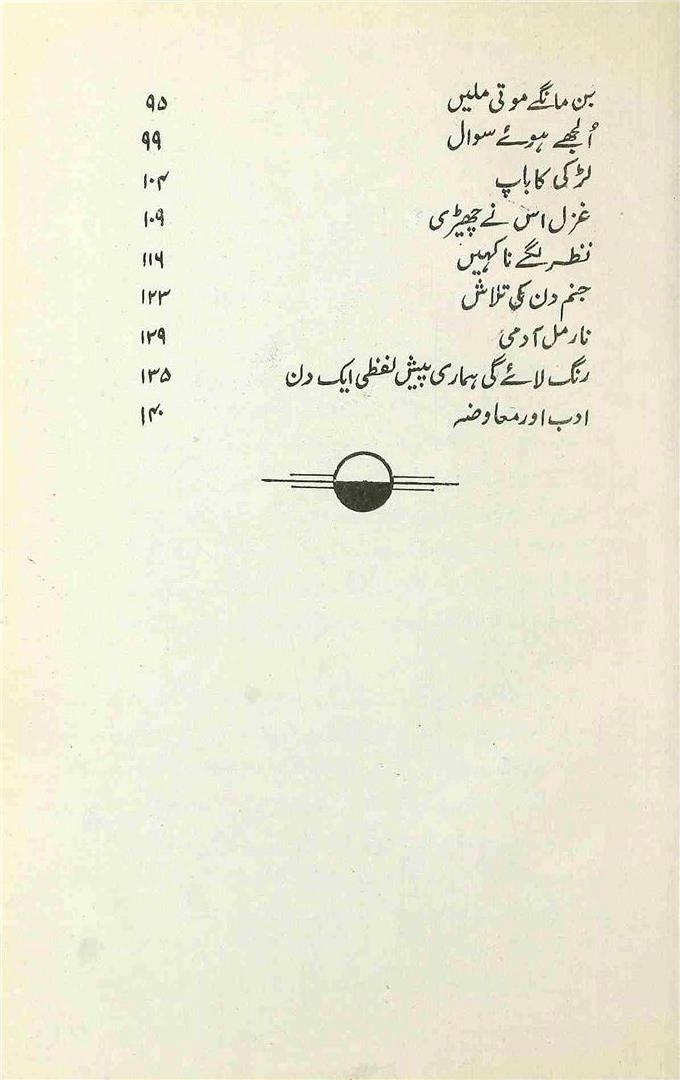 بن مانگے موتی ملیں ۹۵
اُلجھے ہوئے سوال ۹۹
لڑکی کا باپ ۱۰۴
غزل اس نے چھیڑی ۱۰۹
نظر لگے نا کہیں ۱۱۶
جنم دن کی تلاش ۱۲۳
نارمل آدمی ۱۲۹
رنگ لائے گی ہماری پیش لفظی ایک دن ۱۳۵
ادب اور معاوضہ ۱۴۰